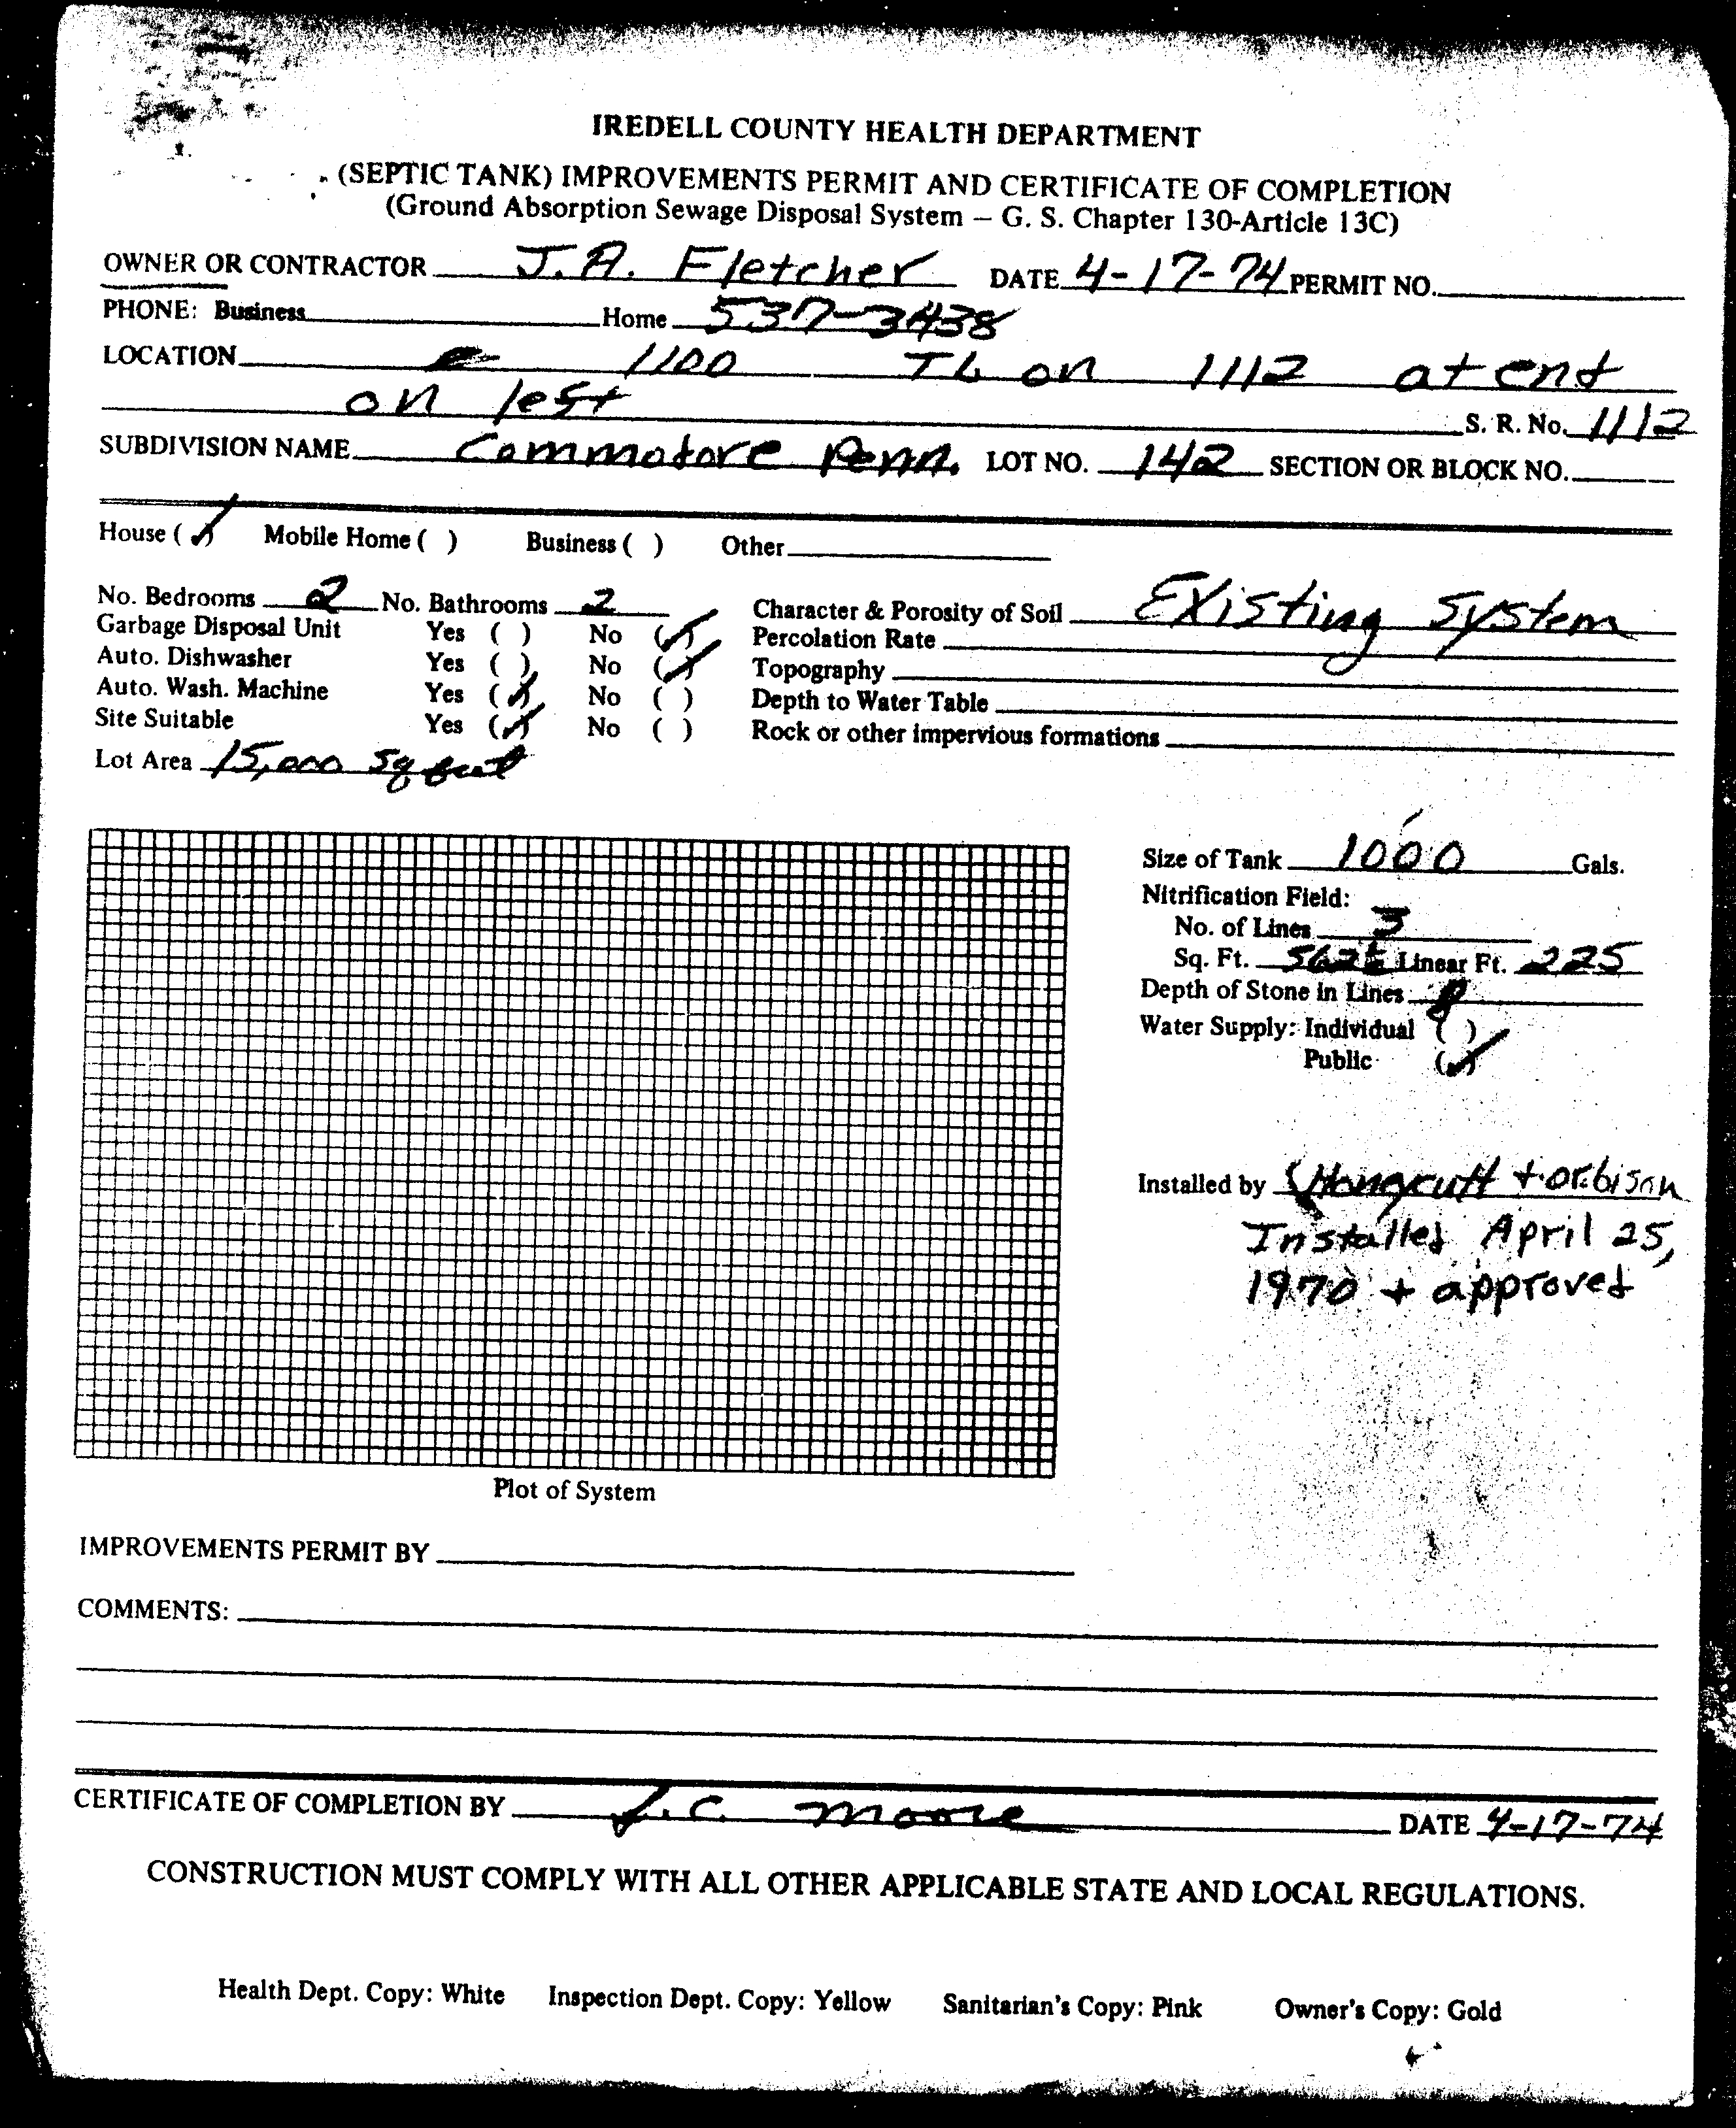 IREDELL COUNTY HEALTH DEPARTMENT
(SEPTIC TANK) IMPROVEMENTS PERMIT AND CERTIFICATE OF COMPLETION
(Ground Absorption Sewage Disposal System – G. S. Chapter 130-Article 13C)
OWNER OR CONTRACTOR J.A. Fletcher DATE 4-17-74 PERMIT NO.
PHONE: Business Home 537-3438
LOCATION 1100 TL on 1112 at end
on left S. R. No. 1112
SUBDIVISION NAME Commodore Penn. LOT NO. 142 SECTION OR BLOCK NO.
House (✓) Mobile Home ( ) Business ( ) Other
No. Bedrooms 2 No. Bathrooms 2 Character & Porosity of Soil Existing System
Garbage Disposal Unit Yes ( ) No (✓) Percolation Rate
Auto. Dishwasher Yes ( ) No (✓) Topography
Auto. Wash. Machine Yes (✓) No ( ) Depth to Water Table
Site Suitable Yes (✓) No ( ) Rock or other impervious formations
Lot Area 15,000 sq feet
Size of Tank 1000 Gals.
Nitrification Field:
No. of Lines 3
Sq. Ft. Linear Ft. 225
Depth of Stone in Lines
Water Supply: Individual ( )
Public (✓)
Installed by Honeycutt + orbison
Installed April 25,
1970 + approved
Plot of System
IMPROVEMENTS PERMIT BY
COMMENTS:
CERTIFICATE OF COMPLETION BY L.C. Moore DATE 4-17-74
CONSTRUCTION MUST COMPLY WITH ALL OTHER APPLICABLE STATE AND LOCAL REGULATIONS.
Health Dept. Copy: White Inspection Dept. Copy: Yellow Sanitarian's Copy: Pink Owner's Copy: Gold